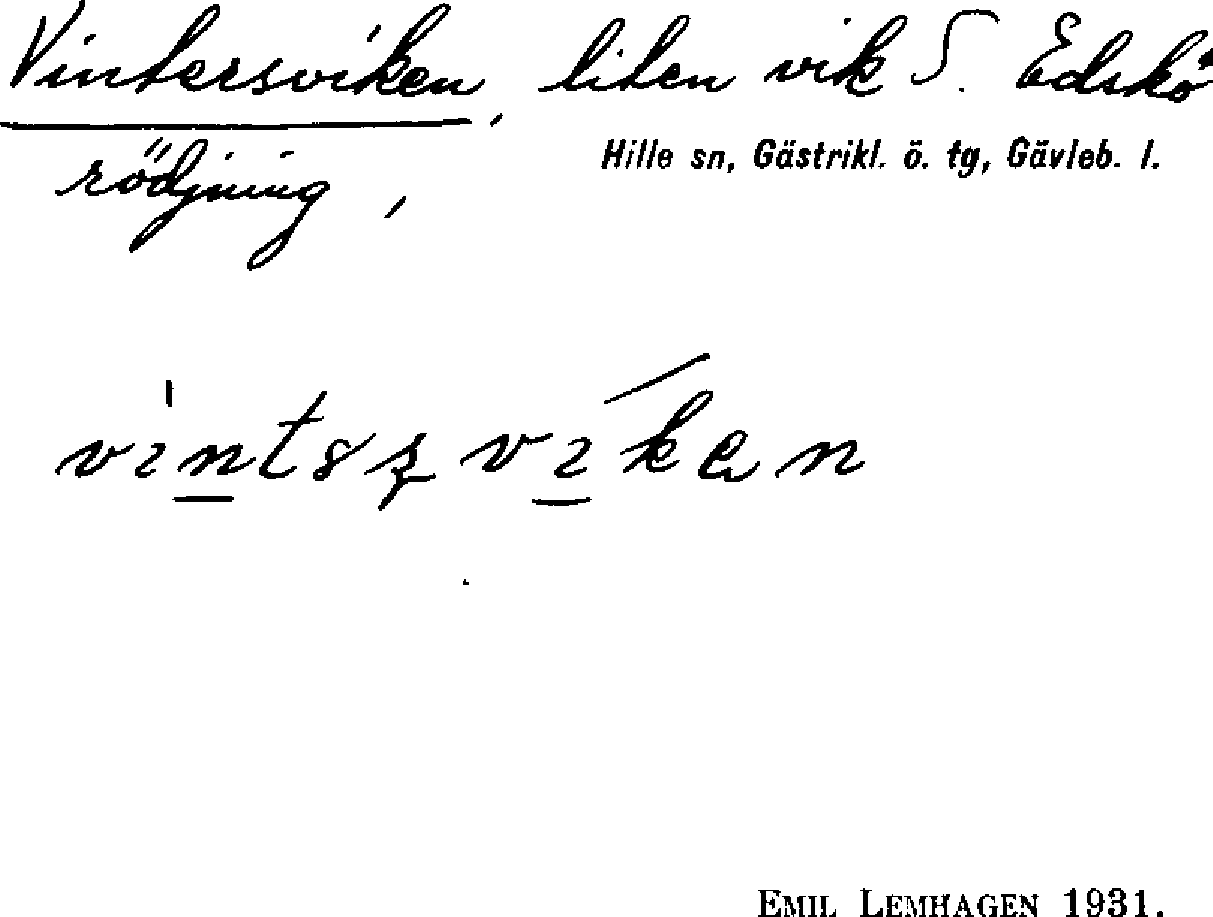 Vintersviken, liten vik S. Edskö
rödjning,
Hille sn, Gästrikl. ö. tg, Gävleb. l.
EMIL LEMHAGEN 1931.